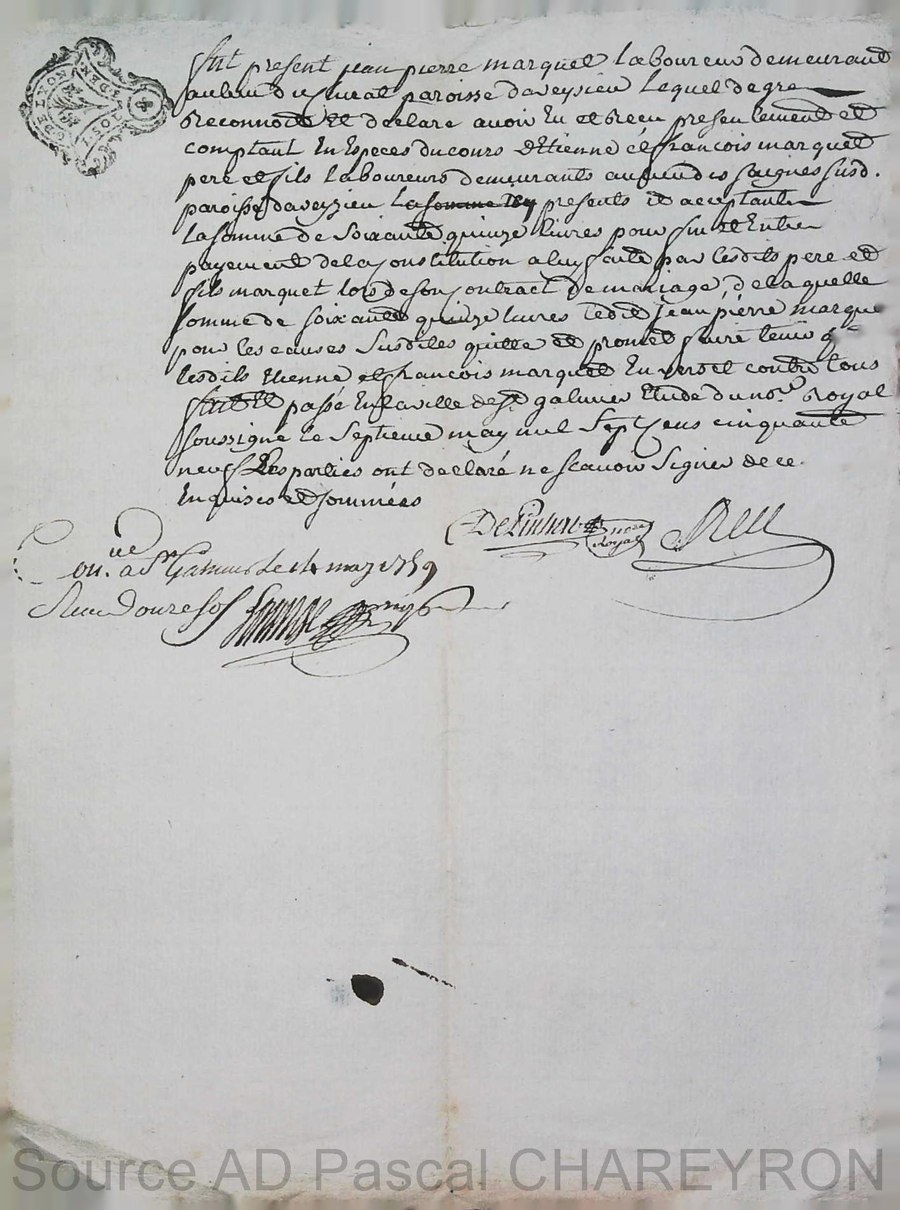 fut present jean pierre marquet laboureur demeurant
au lieu du paroisse daveyzieu lequel de gre
reconnoit et declare avoir eu et receu presentement et
comptant en especes du cours detienne et francois marquet
pere et fils laboureurs demeurants au lieu des saignes susd.
paroisse daveyzieu la somme presents et acceptants
la somme de soixante quinze livres pour fin et entier
payement de la constitution a luy faite par lesdits pere et
fils marquet lors de son contract de mariage, de laquelle
somme de soixante quinze livres ledit jean pierre marque
pour les causes susdites quitte et promet faire tenir q
lesdits etienne et francois marquet envers et contre tous
fait et passé en la ville de st galmier etude du nore royal
soussigné le septieme may mil sept cens cinquante
neuf Les parties ont declaré ne scavoir signer de ce
enquises et sommées
nore
Royal
Conlle a St Galmier le 14 may 1759
Receu douze sols
Source AD Pascal CHAREYRON